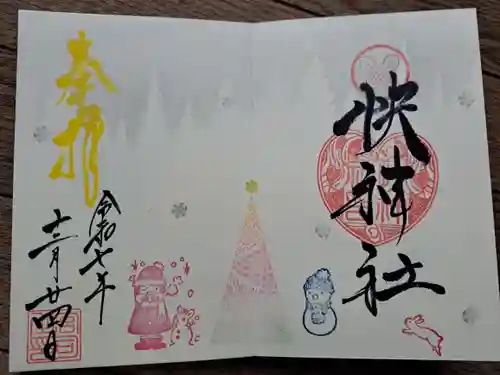 快神社
奉拝
令和七年
十二月廿四日